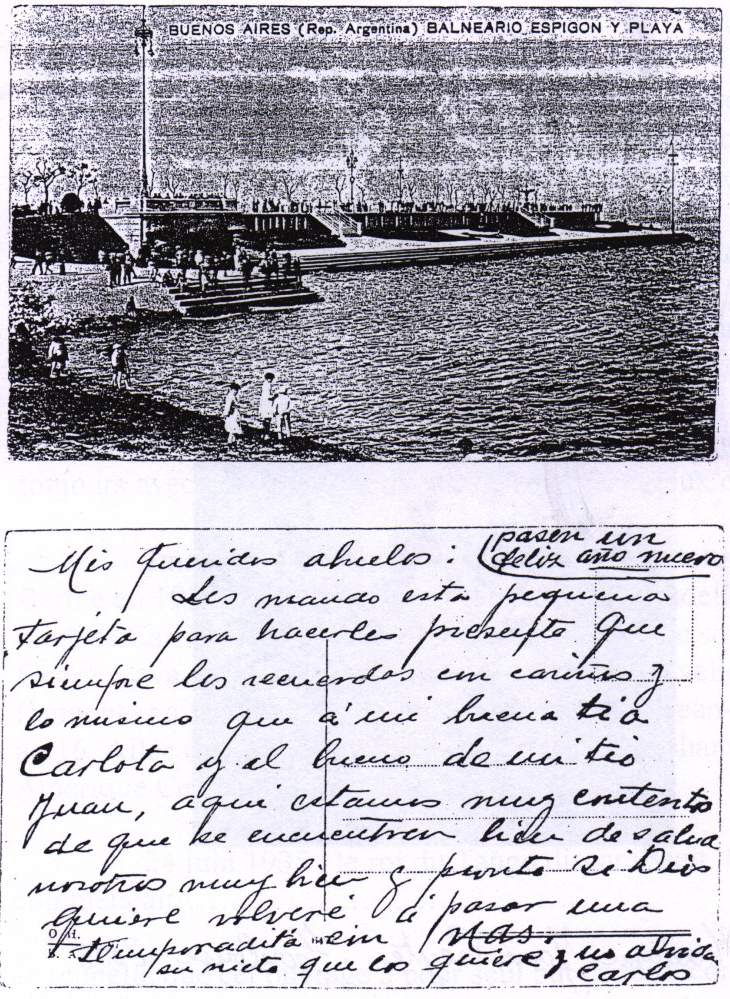 BUENOS AIRES (Rep. Argentina) BALNEARIO ESPIGON Y PLAYA
Mis queridos abuelos:
pasen un
feliz año nuevo
Les mando esta pequeña
tarjeta para hacerles presente que
siempre los recuerdos con cariños y
lo mismo que á mi buena tia
Carlota y el bueno de mi tio
Juan, aqui estamos muy contentos
de que se encuentren bien de salud
nosotros muy bien y pronto si Dios
quiere volveré á pasar una
temporadita en
su nieto que los quiere y no olvida
Carlos